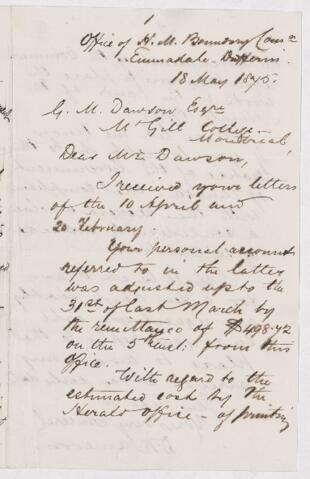 1
Office of H. M. Boundary Com.n
Dufferin
18 May 1875.
G. M. Dawson Esqre
McGill College
Montreal,
Dear Mr Dawson,
I received your letters
of the 10 April and
20 February.
Your personal account
referred to in the latter
was adjusted up to the
31st of last March by
the remittance of $498.72
on the 5th inst: from this
office.
With regard to the
estimated cost by the
Herald Office - of printing